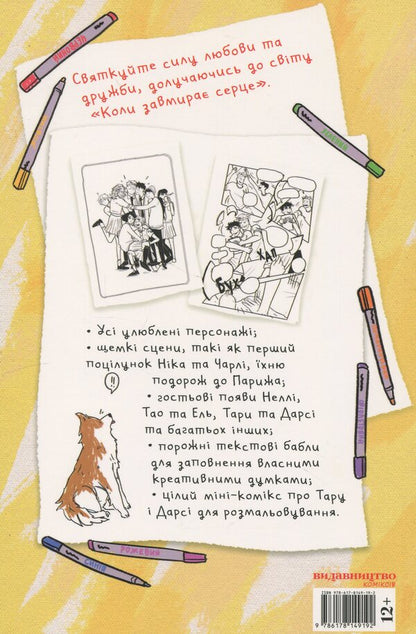 Святкуйте силу любови та
дружби, долучаючись до світу
«Коли завмирає серце».
ХАП
БУХ
• Усі улюблені персонажі;
• щемкі сцени, такі як перший
поцілунок Ніка та Чарлі, їхню
подорож до Парижа;
• гостьові появи Неллі,
Тао та Ель, Тари та Дарсі
та багатьох інших;
• порожні текстові бабли
для заповнення власними
креативними думками;
• цілий міні-комікс про Тару
і Дарсі для розмальовування.
РОЖЕВИЙ
СИНІЙ
ВИДАВНИЦТВО
КОМІКСІВ
ISBN 978-617-8149-19-2
9 786178 149192
12+